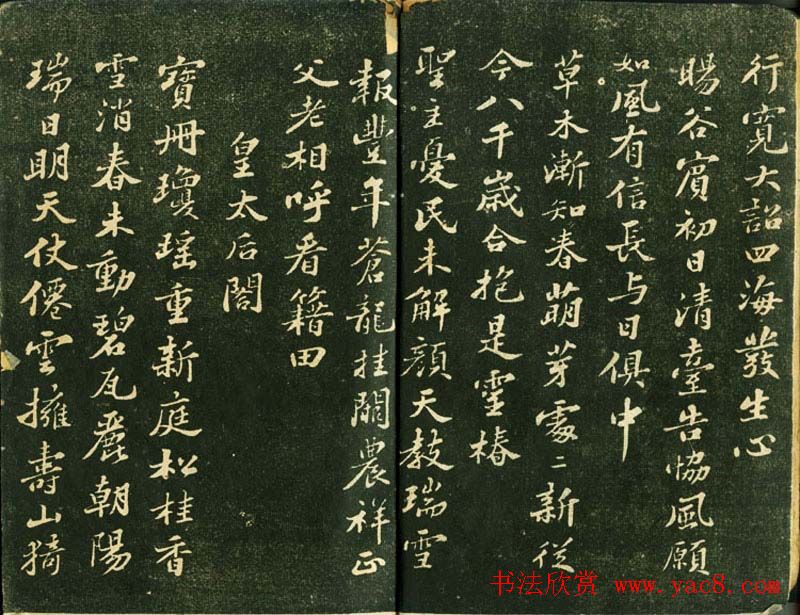 行寬大詔四海發生心
暘谷賓初日清臺告協風願
如風有信長与日俱中
草木漸知春萌芽處〻新從
今八千歲合抱是靈椿
聖主憂民未解顏天教瑞雪
報豐年蒼龍挂闕農祥正
父老相呼看籍田
皇太后閣
寶冊瓊瑤重新庭松桂香
雪消春未動碧瓦麗朝陽
瑞日明天仗僊雲擁壽山猗
书法欣赏 www.yac8.com